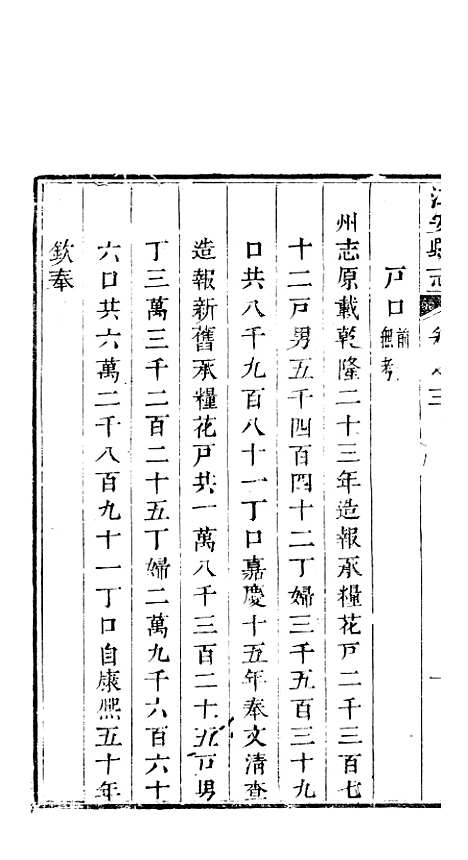 江安縣志 卷之三
戸口 前無考
州志原載乾隆二十三年造報承糧花戸二千三百七
十二戸男五千四百四十二丁婦三千五百三十九
口共八千九百八十一丁口嘉慶十五年奉文清查
造報新舊承糧花戸共一萬八千三百二十五戸男
丁三萬三千二百二十五丁婦二萬九千六百六十
六口共六萬二千八百九十一丁口自康熙五十年
欽奉